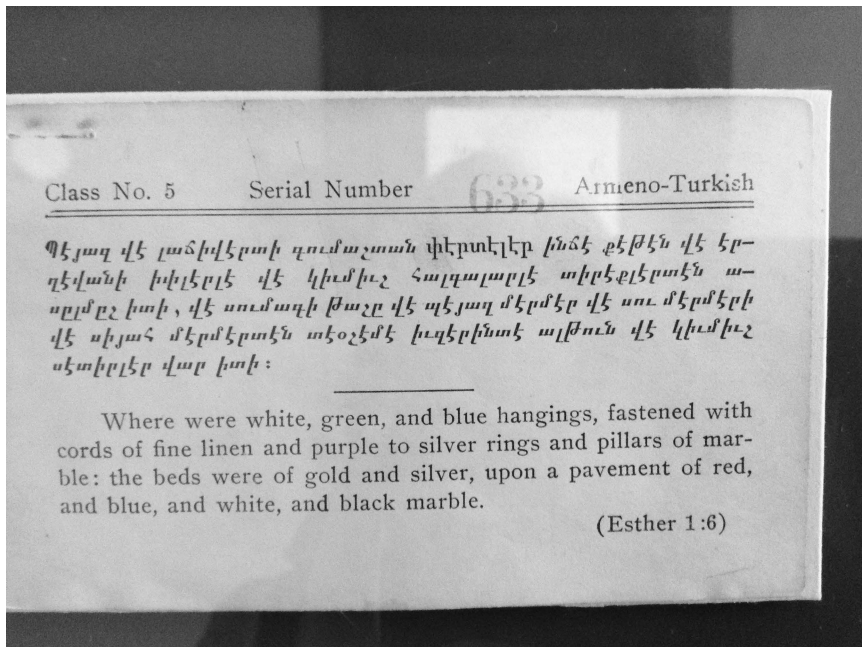 Class No. 5 Serial Number 633 Armeno-Turkish
Պէյազ վէ լաճիվէրտի գումաշտան փէրտէլէր ինճէ քէթէն վէ էր-
ղէվանի իփլէրլէ վէ կիւմիւշ հալգալարլէ տիրէքլէրտէն ա-
սըլմըշ իտի, վէ սումագի թաշը վէ պէյազ մէրմէր վէ սու մէրմէրի
վէ սիյահ մէրմէրտէն տէօշէմէ իւզէրինտէ ալթուն վէ կիւմիւշ
սէտիրլէր վար իտի։
Where were white, green, and blue hangings, fastened with
cords of fine linen and purple to silver rings and pillars of mar-
ble: the beds were of gold and silver, upon a pavement of red,
and blue, and white, and black marble.
(Esther 1:6)